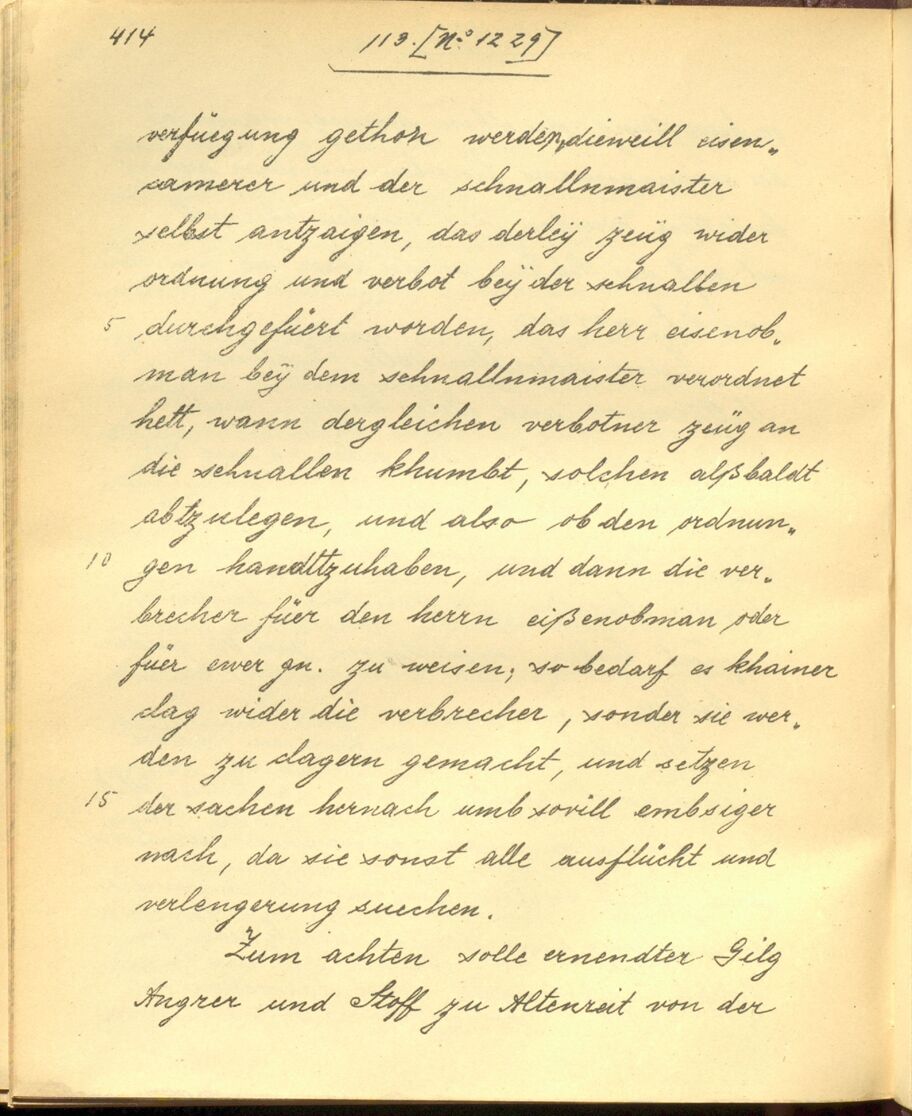 414
113. [No 1229]
verfüegung gethon werden, dieweill eisen„
camerer und der schnallnmaister
selbst antzaigen, das derleÿ zeüg wider
ordnung und verbot beÿ der schnallen
5 durchgefüert worden, das herr eisenob„
man beÿ dem schnallnmaister verordnet
hett, wann dergleichen verbotner zeüg an
die schnallen khumbt, solchen alßbaldt
abtzulegen, und also ob den ordnun„
10 gen handttzuhaben, und dann die ver„
brecher füer den herrn eißenobman oder
füer ewer gn. zu weisen; so bedarf es khainer
clag wider die verbrecher, sonder sie wer„
den zu clagern gemacht, und setzen
15 der sachen hernach umb sovill embsiger
nach, da sie sonst alle ausflücht und
verlengerung suechen.
Zum achten solle ernendter Gilg
Angrer und Stoff zu Altenreit von der